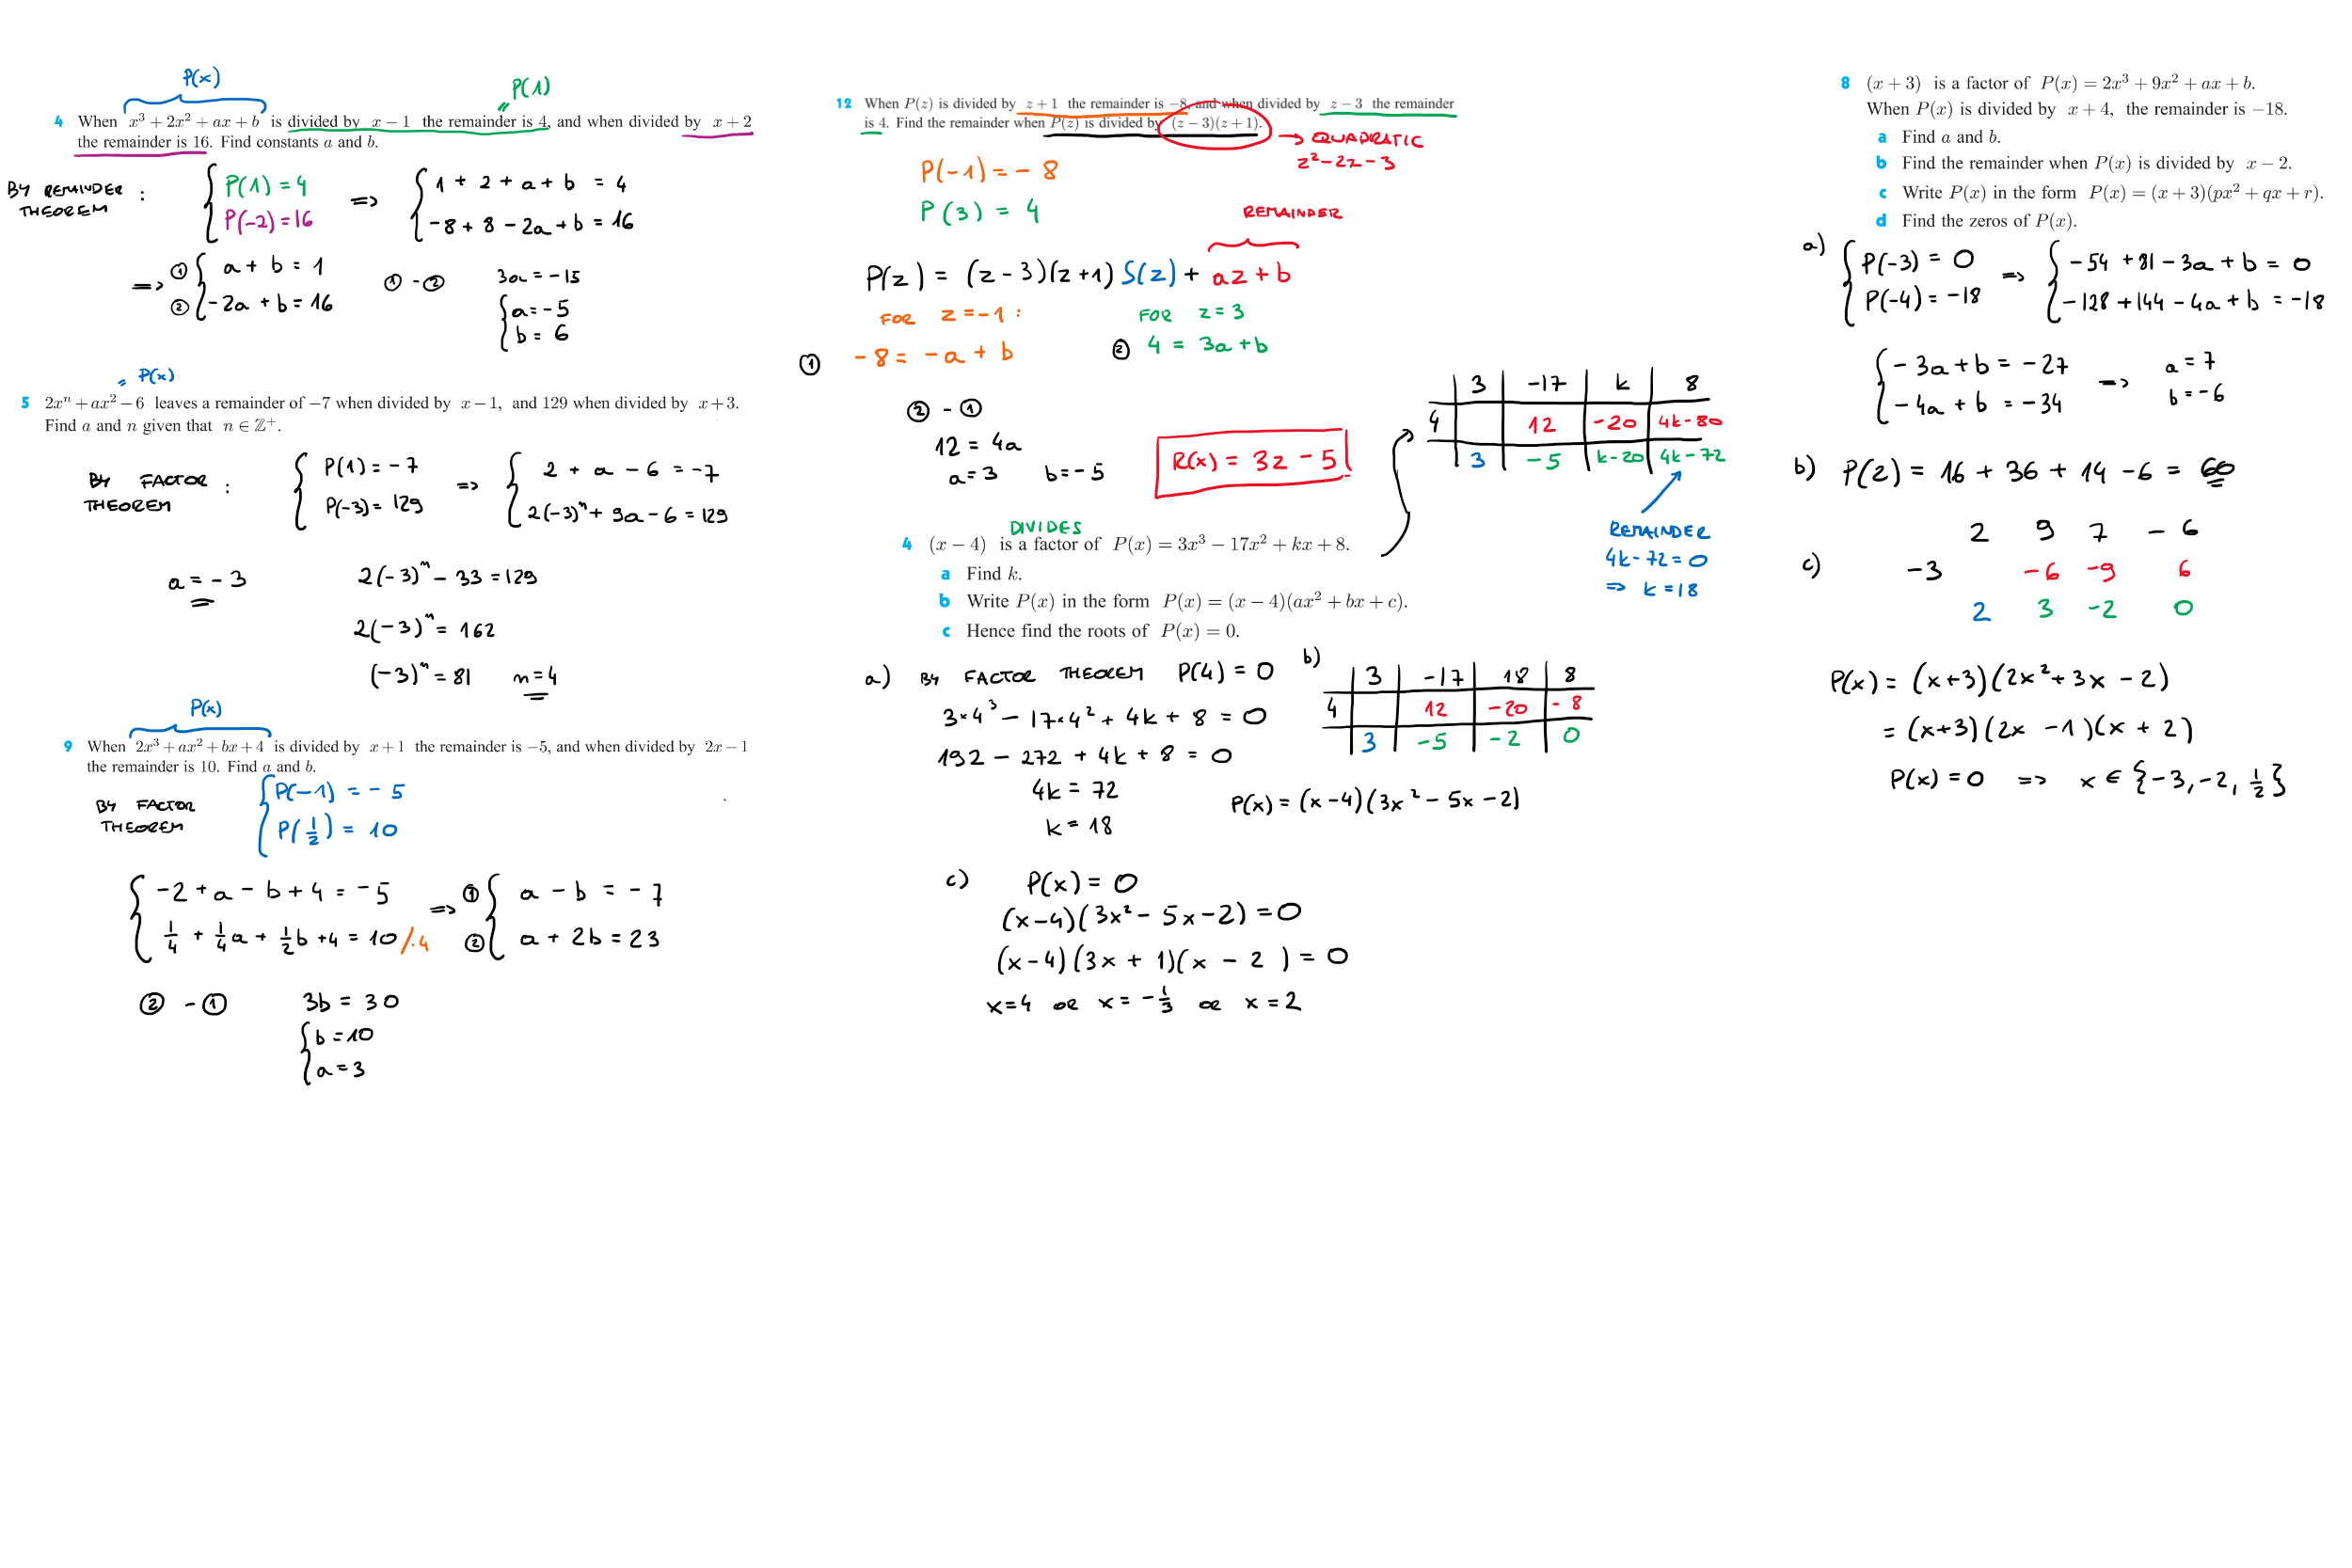 P(x)
= P(1)
4 When x³ + 2x² + ax + b is divided by x − 1 the remainder is 4, and when divided by x + 2
the remainder is 16. Find constants a and b.
BY REMAINDER THEOREM :
{ P(1) = 4 => { 1 + 2 + a + b = 4
P(-2) = 16 -8 + 8 - 2a + b = 16
=> ① { a + b = 1 ① - ② 3a = -15
② -2a + b = 16 { a = -5
b = 6
= P(x)
5 2xⁿ + ax² − 6 leaves a remainder of −7 when divided by x − 1, and 129 when divided by x + 3.
Find a and n given that n ∈ ℤ⁺.
BY FACTOR THEOREM :
{ P(1) = -7 => { 2 + a - 6 = -7
P(-3) = 129 2(-3)ⁿ + 9a - 6 = 129
a = -3 2(-3)ⁿ - 33 = 129
2(-3)ⁿ = 162
(-3)ⁿ = 81 n = 4
P(x)
9 When 2x³ + ax² + bx + 4 is divided by x + 1 the remainder is −5, and when divided by 2x − 1
the remainder is 10. Find a and b.
BY FACTOR THEOREM
{ P(-1) = -5
P(1/2) = 10
{ -2 + a - b + 4 = -5 => ① { a - b = -7
1/4 + 1/4 a + 1/2 b + 4 = 10 /·4 ② a + 2b = 23
② - ① 3b = 30
{ b = 10
a = 3
12 When P(z) is divided by z + 1 the remainder is −8, and when divided by z − 3 the remainder
is 4. Find the remainder when P(z) is divided by (z − 3)(z + 1).
→ QUADRATIC
z² - 2z - 3
P(-1) = -8
P(3) = 4
REMAINDER
P(z) = (z-3)(z+1) S(z) + az + b
FOR z = -1 : FOR z = 3
① -8 = -a + b ② 4 = 3a + b
② - ①
12 = 4a
a = 3 b = -5
R(x) = 3z - 5
DIVIDES
4 (x − 4) is a factor of P(x) = 3x³ − 17x² + kx + 8.
a Find k.
b Write P(x) in the form P(x) = (x − 4)(ax² + bx + c).
c Hence find the roots of P(x) = 0.
3 -17 k 8
4 12 -20 4k-80
3 -5 k-20 4k-72
REMAINDER
4k-72=0
=> k=18
a) BY FACTOR THEOREM P(4) = 0
3×4³ - 17×4² + 4k + 8 = 0
192 - 272 + 4k + 8 = 0
4k = 72
k = 18
b)
3 -17 18 8
4 12 -20 -8
3 -5 -2 0
P(x) = (x-4)(3x² - 5x - 2)
c) P(x) = 0
(x-4)(3x² - 5x - 2) = 0
(x-4)(3x + 1)(x - 2) = 0
x=4 or x = -1/3 or x = 2
8 (x + 3) is a factor of P(x) = 2x³ + 9x² + ax + b.
When P(x) is divided by x + 4, the remainder is −18.
a Find a and b.
b Find the remainder when P(x) is divided by x − 2.
c Write P(x) in the form P(x) = (x + 3)(px² + qx + r).
d Find the zeros of P(x).
a) { P(-3) = 0 => { -54 + 81 - 3a + b = 0
P(-4) = -18 -128 + 144 - 4a + b = -18
{ -3a + b = -27 => a = 7
-4a + b = -34 b = -6
b) P(2) = 16 + 36 + 14 - 6 = 60
2 9 7 -6
c) -3 -6 -9 6
2 3 -2 0
P(x) = (x+3)(2x² + 3x - 2)
= (x+3)(2x - 1)(x + 2)
P(x) = 0 => x ∈ {-3, -2, 1/2}